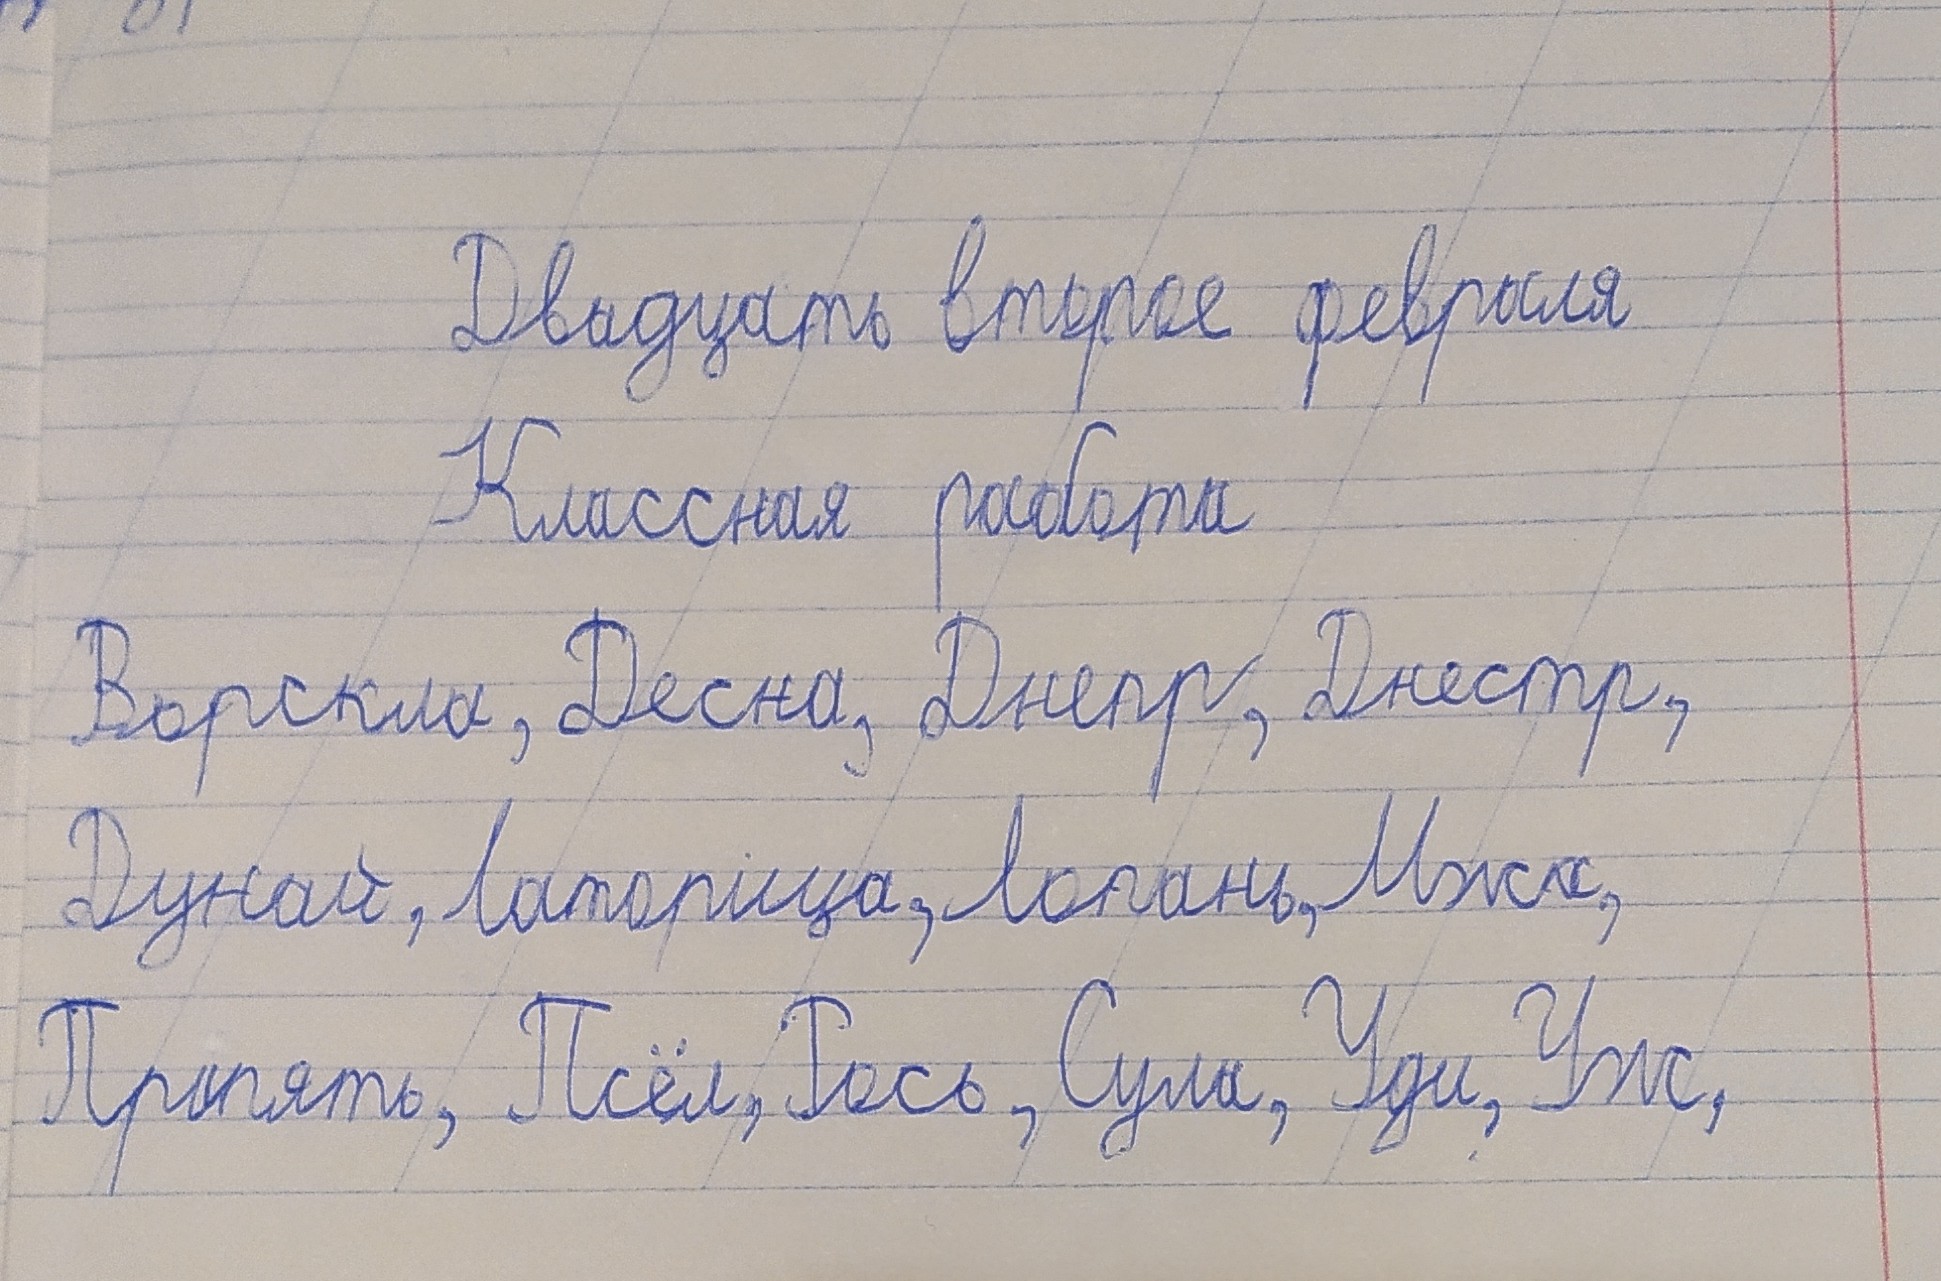 Двадцать второе февраля
Классная работа
Ворскла, Десна, Днепр, Днестр,
Дунай, Латоріца, Лопань, Мжа,
Припять, Псёл, Рось, Сула, Уди, Уж,